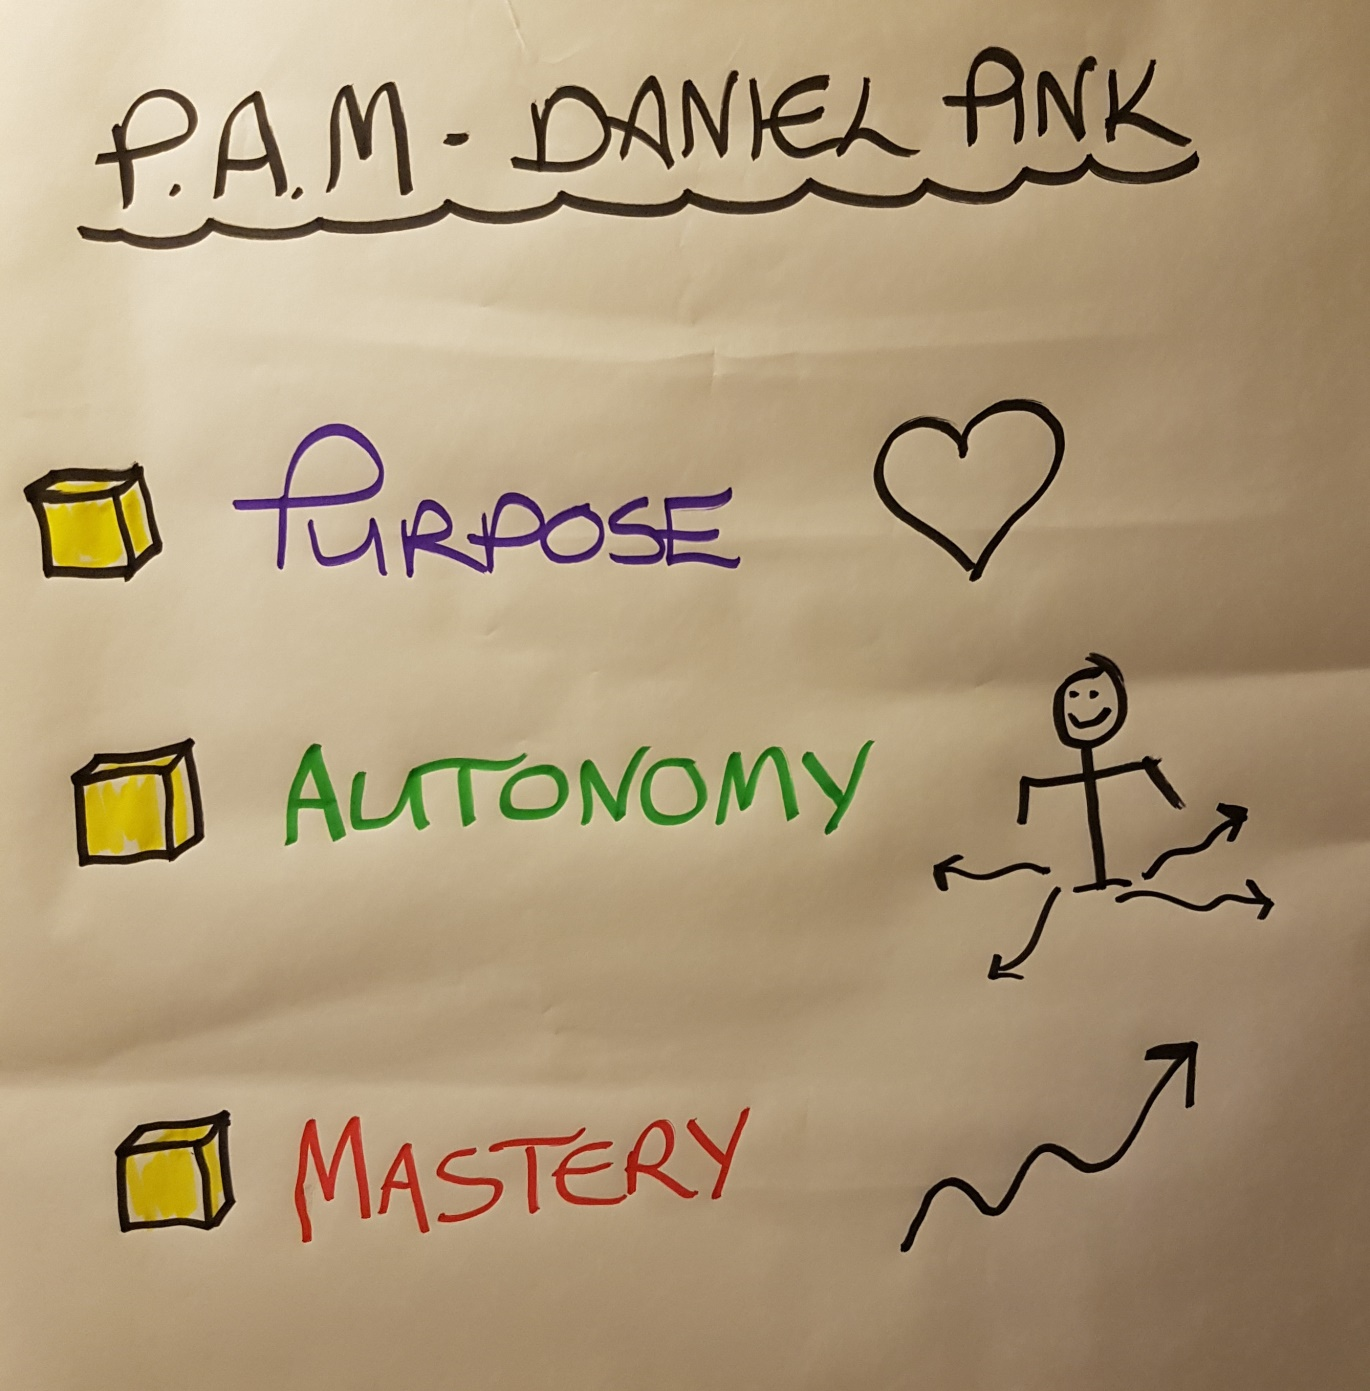 P.A.M - DANIEL PINK
PURPOSE
AUTONOMY
MASTERY